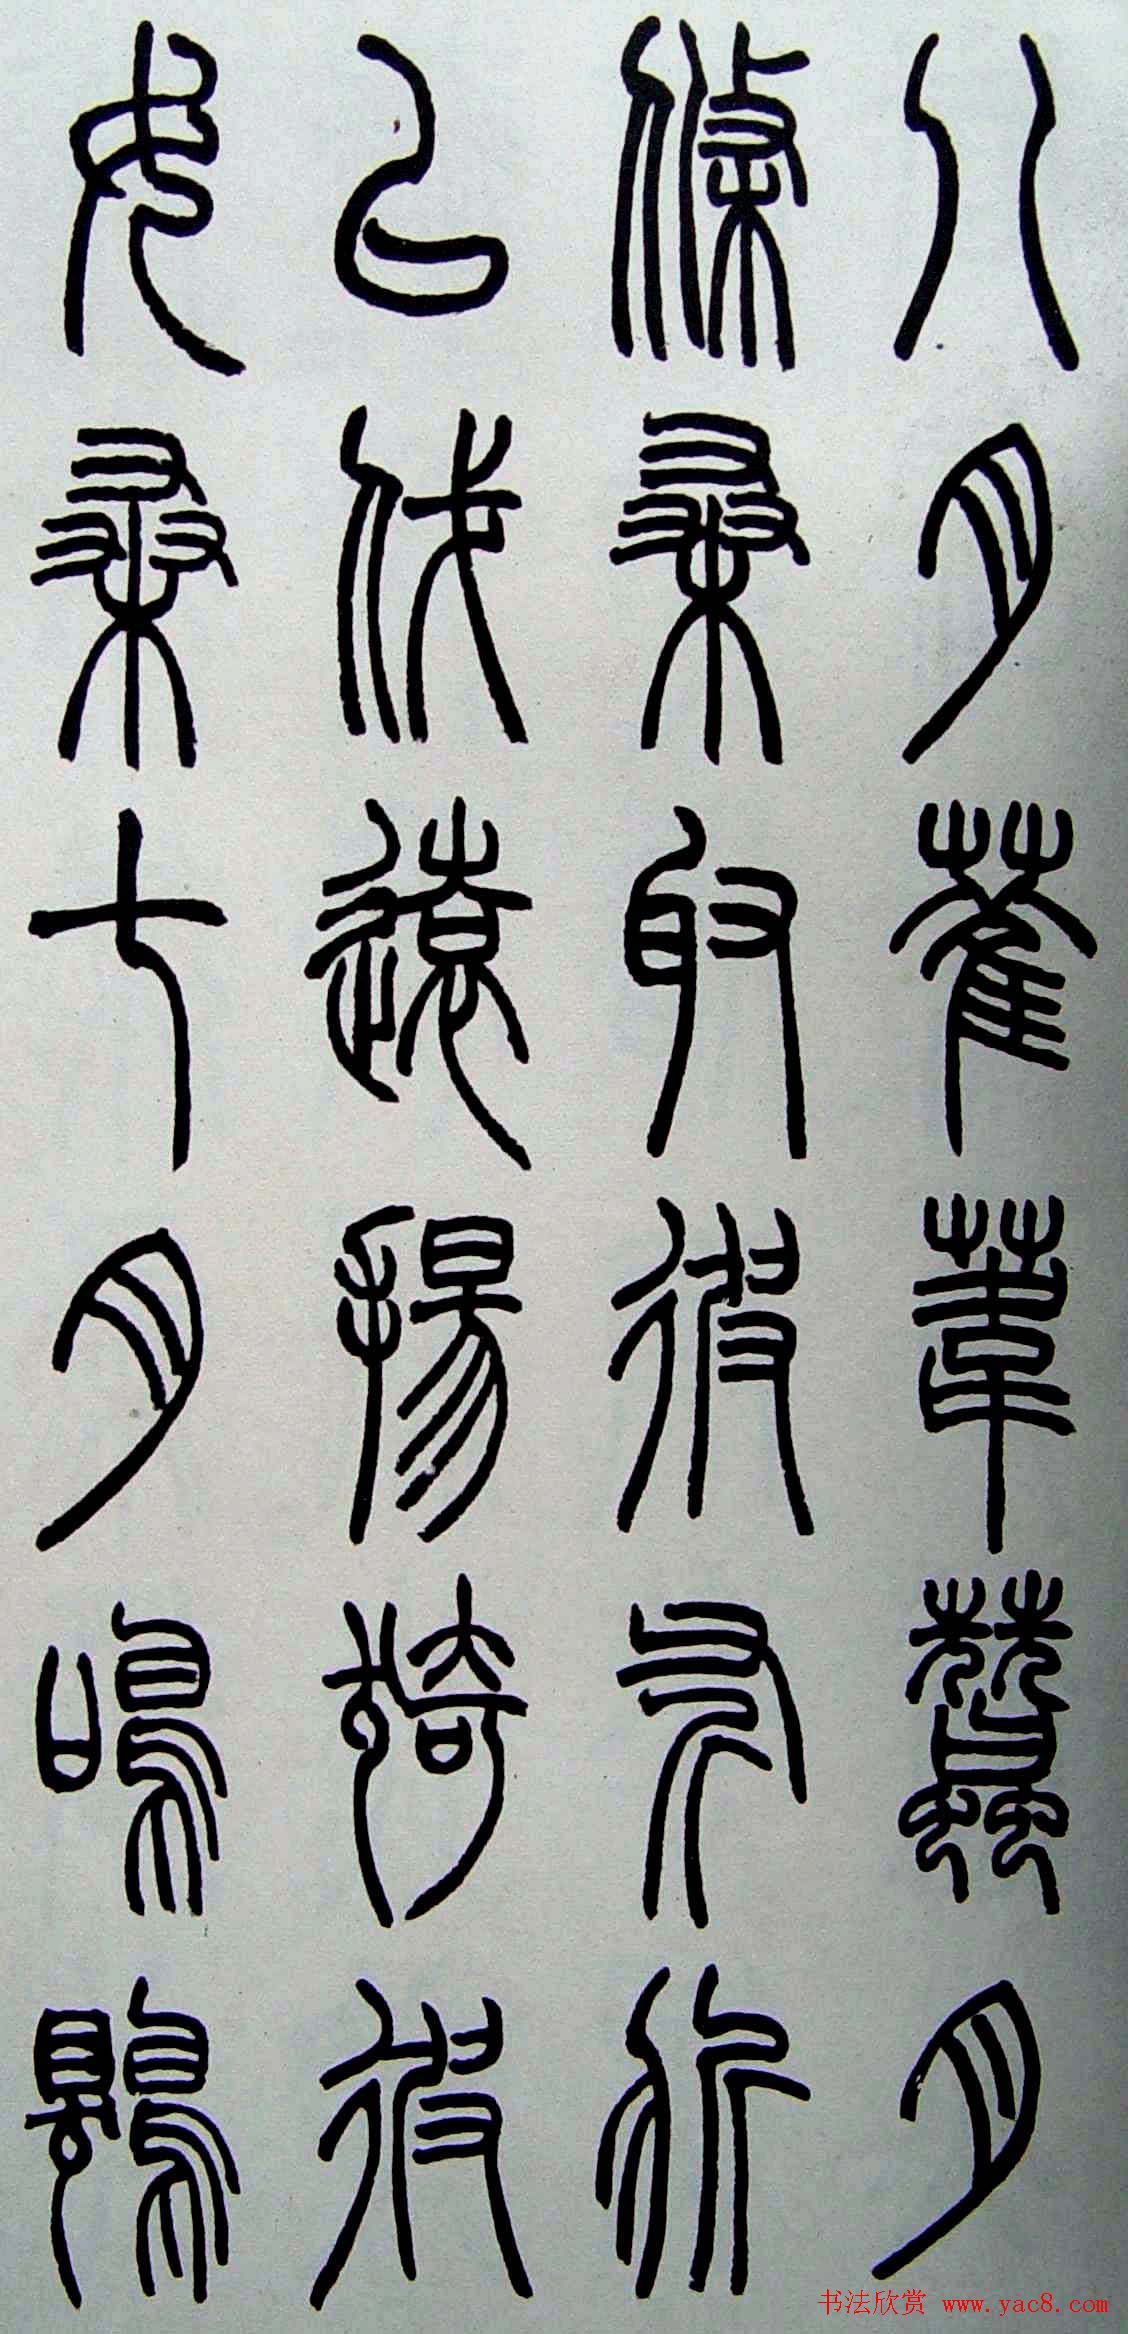 八月萑葦蠶月
條桑取彼斧斨
以伐遠揚猗彼
女桑七月鳴鵙
书法欣赏 www.yac8.com